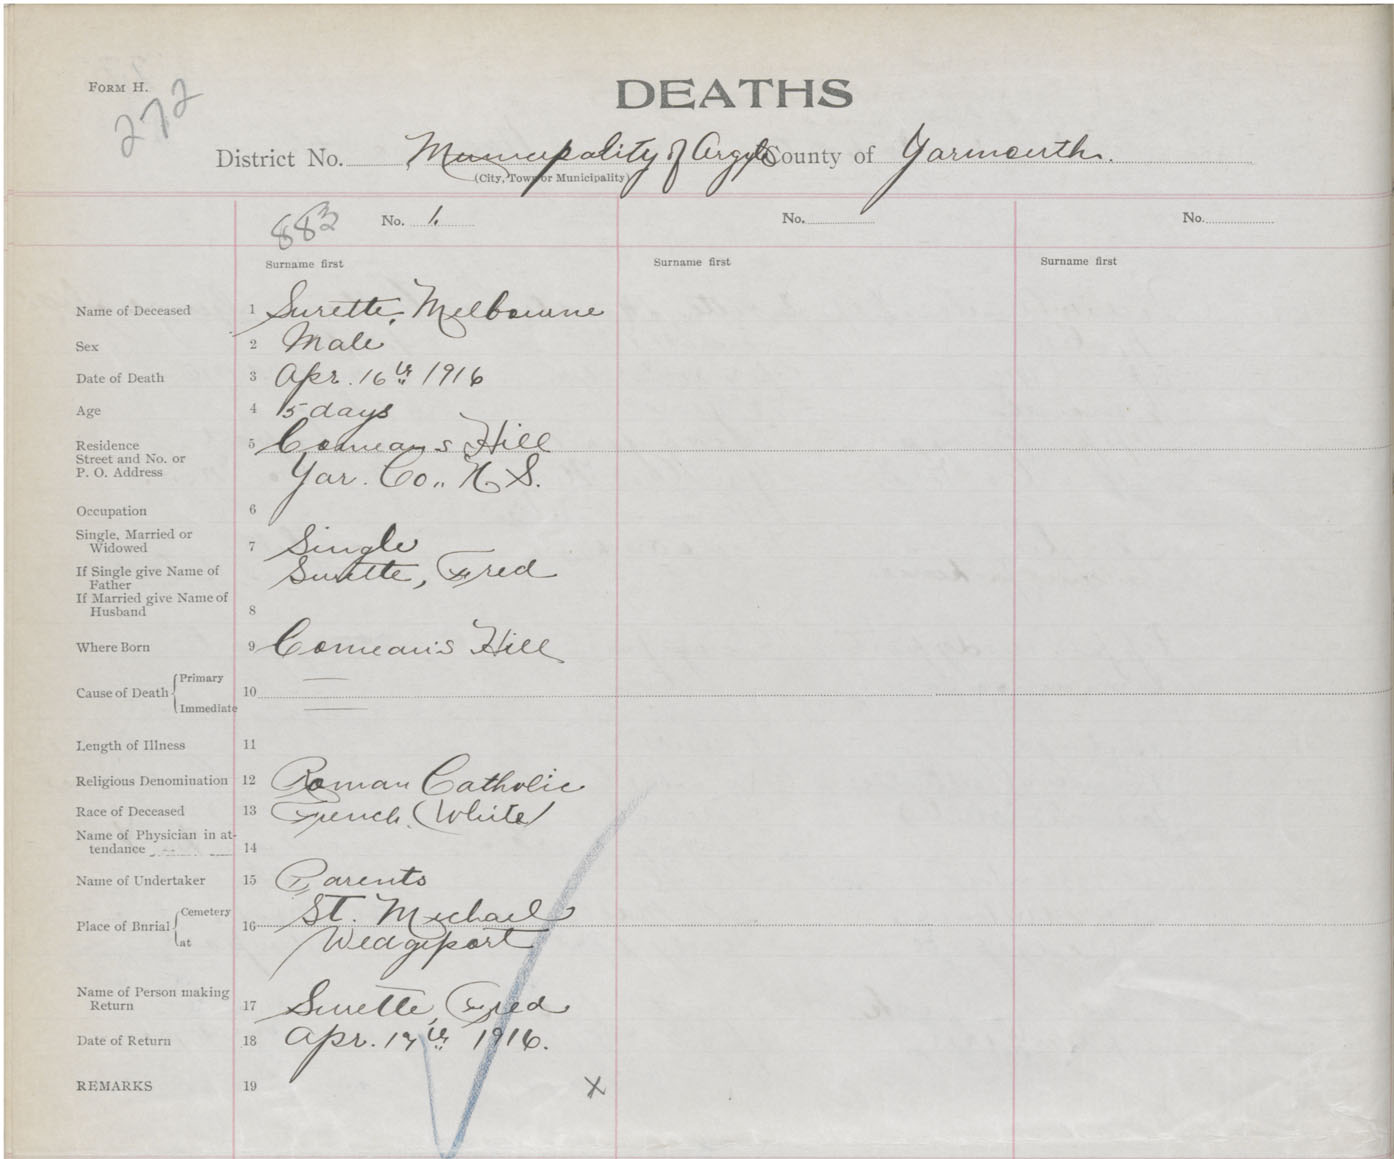 FORM H.
272
DEATHS
District No. Municipality of Argyle County of Yarmouth.
(City, Town or Municipality)
883 No. 1. No. No.
Surname first Surname first Surname first
Name of Deceased 1 Surette, Melbourne
Sex 2 Male
Date of Death 3 Apr. 16th 1916
Age 4 5 days
Residence 5 Comeau's Hill
Street and No. or
P. O. Address Yar. Co., N.S.
Occupation 6
Single, Married or
Widowed 7 Single
If Single give Name of
Father Surette, Fred
If Married give Name of
Husband 8
Where Born 9 Comeau's Hill
Cause of Death { Primary —
10
Immediate —
Length of Illness 11
Religious Denomination 12 Roman Catholic
Race of Deceased 13 French (White)
Name of Physician in at-
tendance 14
Name of Undertaker 15 Parents
Place of Bnrial { Cemetery St. Michael
16
at Wedgeport
Name of Person making
Return 17 Surette, Fred
Date of Return 18 Apr. 17th 1916.
REMARKS 19 X